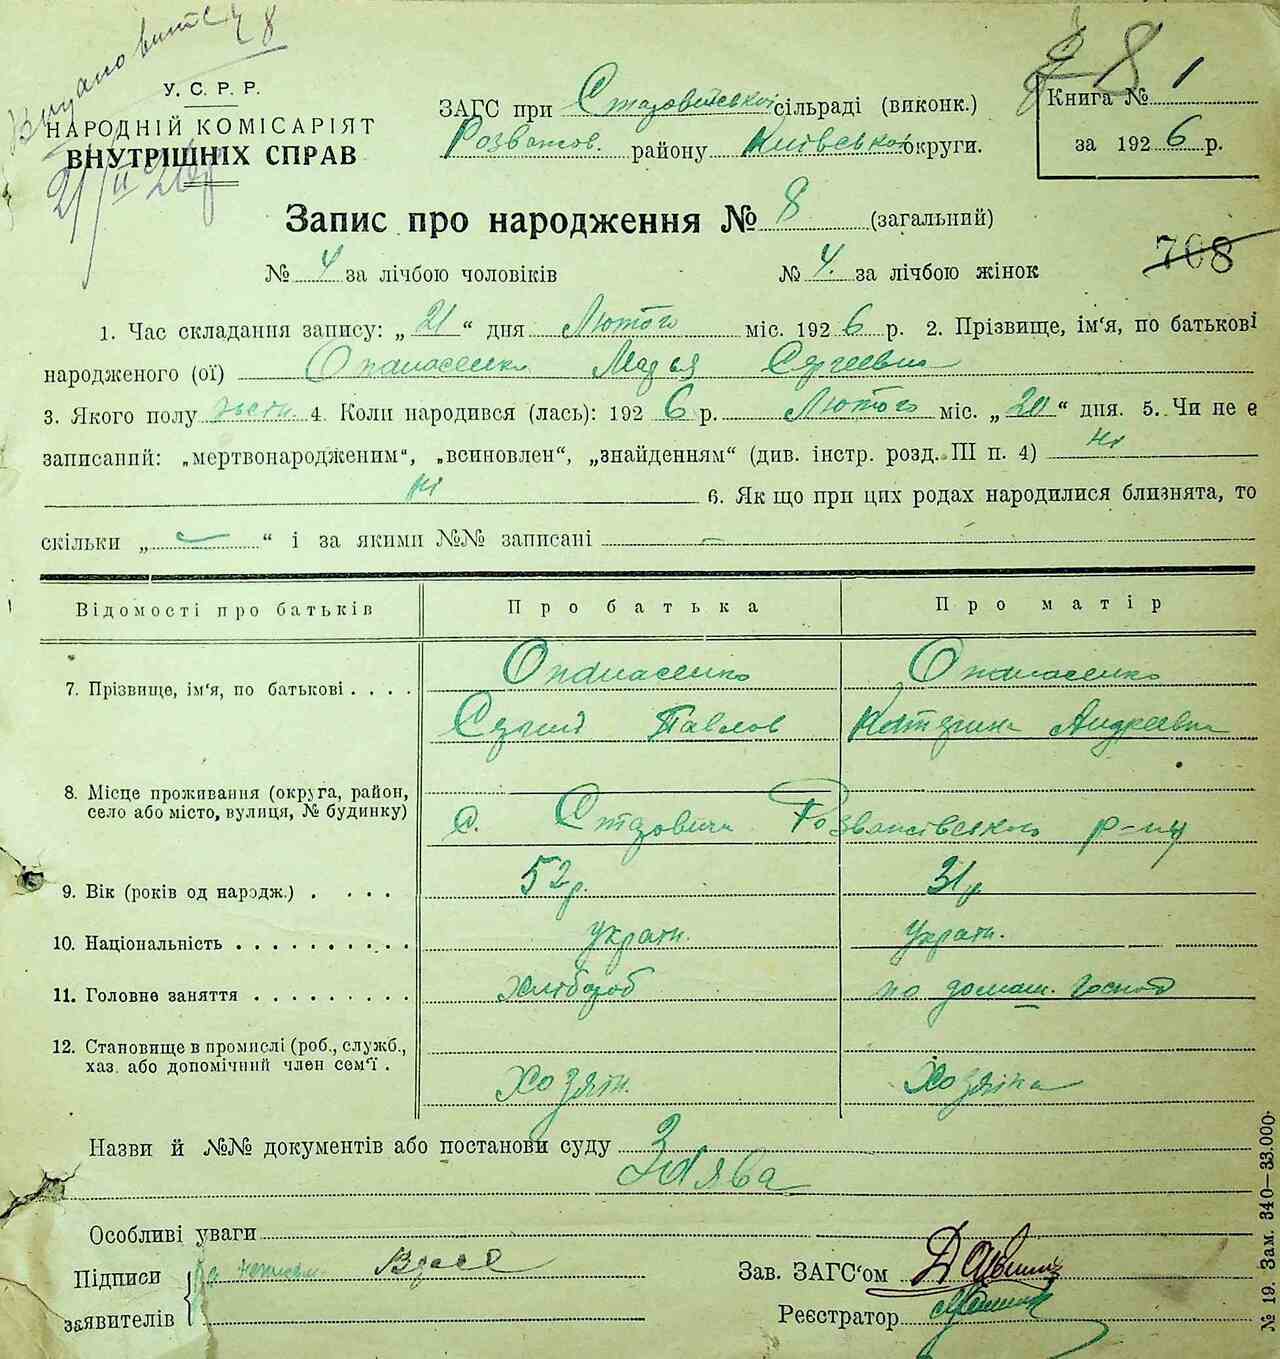 У. С. Р. Р.
НАРОДНІЙ КОМІСАРІЯТ
ВНУТРІШНІХ СПРАВ
21/II 26
ЗАГС при Стазовитській сільраді (виконк.)
Розважов. району Київської округи.
8
Книга № 1
за 1926 р.
Запис про народження № 8 (загальний)
№ 4 за лічбою чоловіків № 4. за лічбою жінок
708
1. Час складання запису: „21“ дня Лютого міс. 1926 р. 2. Прізвище, ім‘я, по батькові
народженого (ої) Опанасенко Марья Сергеевна
3. Якого полу жістк. 4. Коли народився (лась): 1926 р. Лютого міс. „20“ дня. 5. Чи не є
записаний: „мертвонародженим“, „всиновлен“, „знайденням“ (див. інстр. розд. III п. 4) ні
ні 6. Як що при цих родах народилися близнята, то
скільки „—“ і за якими №№ записані —
Відомості про батьків Про батька Про матір
7. Прізвище, ім‘я, по батькові . . . . Опанасенко Опанасенко
Сергий Павлов Катерина Андреевна
8. Місце проживання (округа, район,
село або місто, вулиця, № будинку) с. Стазовичи Розважівського р-ну
9. Вік (років од народж.) . . . . 52 р. 31 р
10. Національність . . . . . . . . . . україн. україн.
11. Головне заняття . . . . . . . . . хлібороб по домаш. господ
12. Становище в промислі (роб., служб.,
хаз. або допомічний член сем‘ї . Хозяін. Хозяіна
Назви й №№ документів або постанови суду
Заява
Особливі уваги
Підписи
заявителів
Зав. ЗАГС‘ом
Реєстратор
№ 19. Зам. 340—33.000.